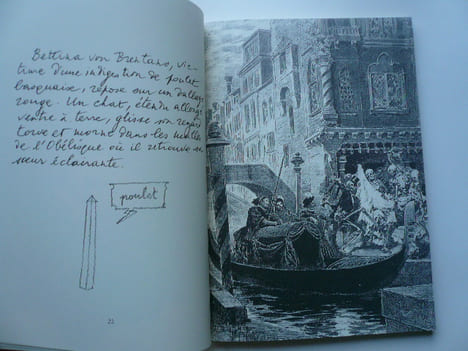 Bettina von Brentano, vic
time d'une indigestion de poulet
basquaise, repose sur un dallage
rouge. Un chat, étendu allongé
ventre à terre, glisse son regard
torve et morne dans les
de l'Obélisque où il retrouve sa
sœur éclairante.
poulet
21